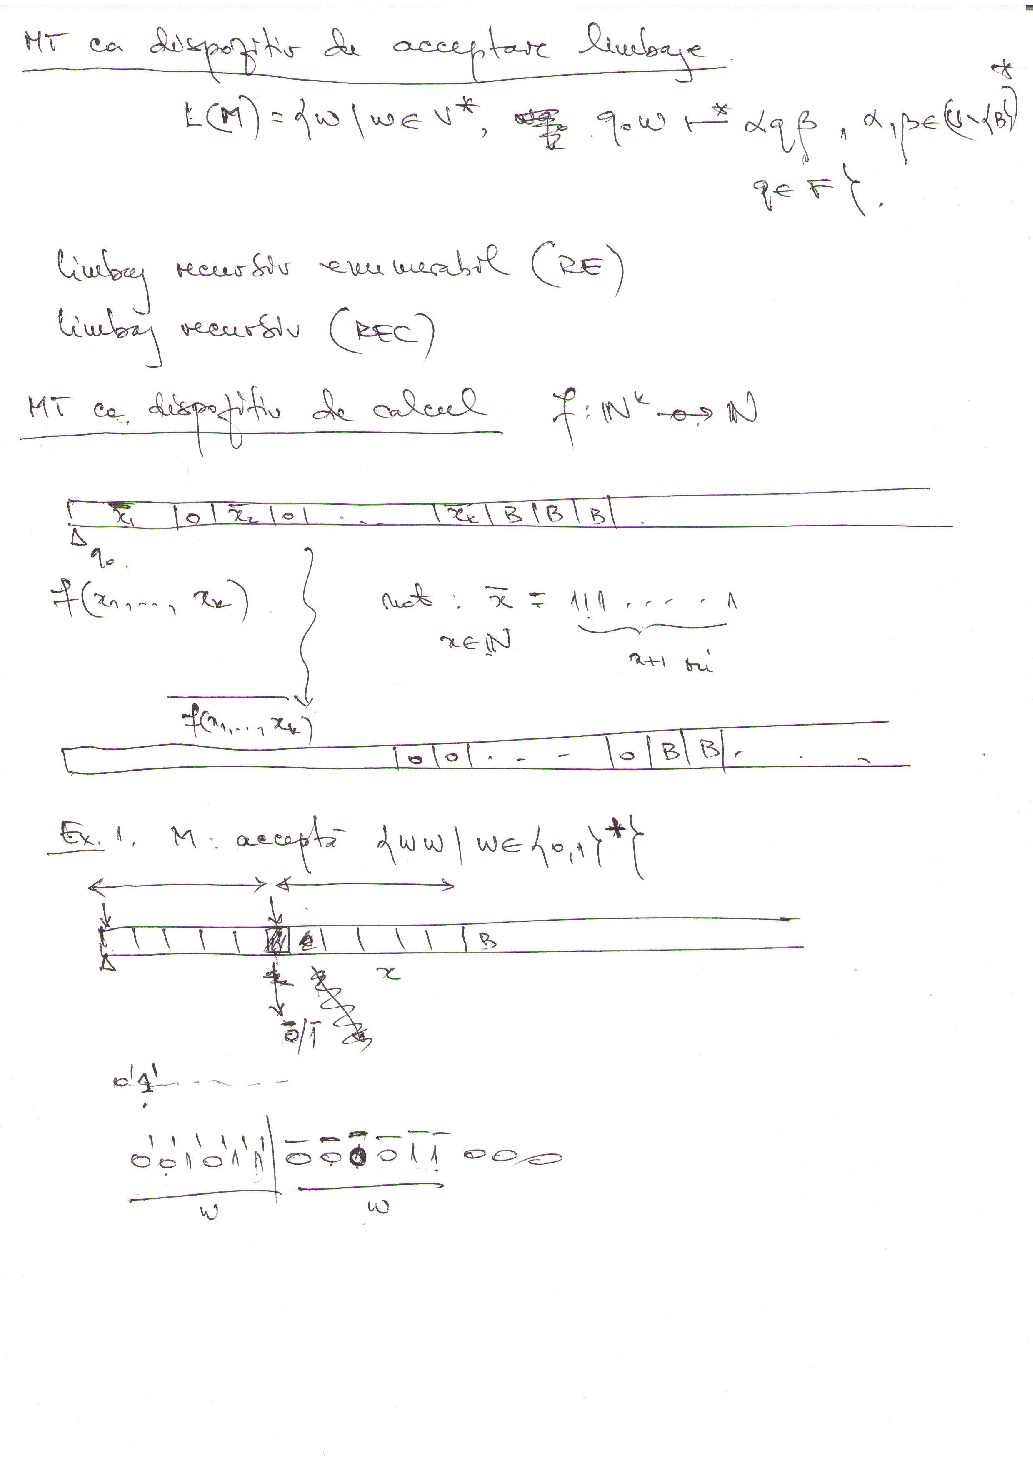 MT ca dispozitiv de acceptare limbaje
L(M) = {w / w ∈ V*, q₀w ⊢* αqβ, α,β ∈ (U \ {B})*
q ∈ F}.
limbaj recursiv enumerabil (RE)
limbaj recursiv (REC)
MT ca dispozitiv de calcul f: ℕᵏ ⟶ ℕ
x̄₁ 0 x̄₂ 0 . . . x̄ₖ B B B
q₀
f(x₁,..., xₖ) not : x̄ = 111.....1
x ∈ ℕ x+1 ori
f(x₁,..., xₖ)
0 0 . . . 0 B B . . .
Ex. 1. M: acceptă {ww / w ∈ {0,1}*}
B
x
0̄/1̄
0' 1' . . . .
0' 0' 1' 0' 1' 1' 0̄ 0̄ 0̄ 0̄ 1̄ 1̄ 0 0 0
w w